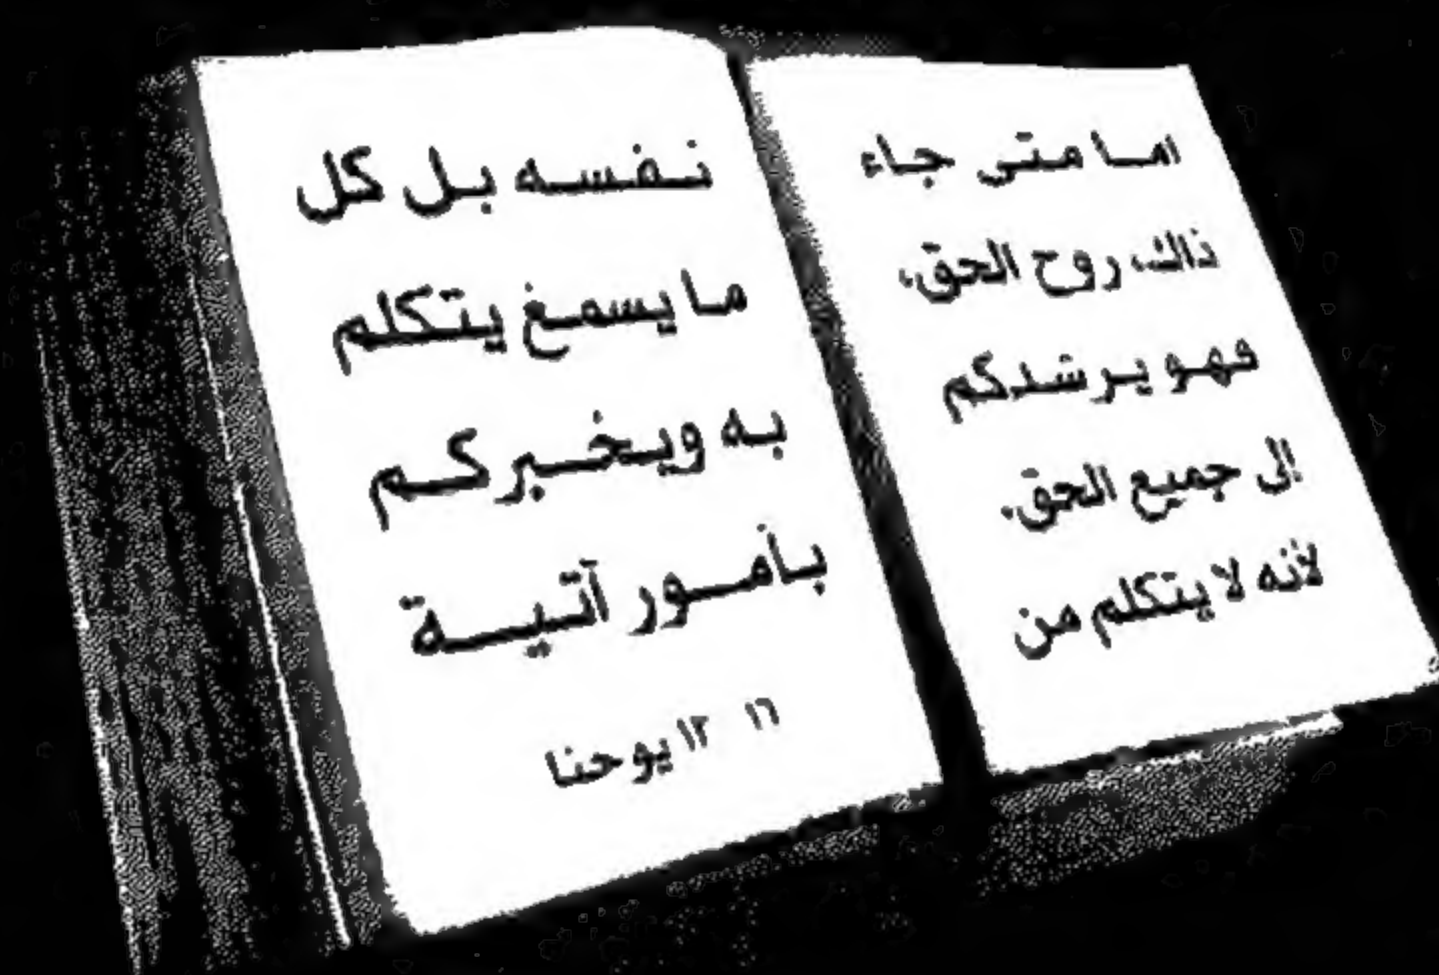 اما متى جاء
ذاك، روح الحق،
فهو يرشدكم
إلى جميع الحق.
لأنه لا يتكلم من
نفسه بل كل
ما يسمغ يتكلم
به ويخبركم
بأمور آتية
١٦ ١٣ يوحنا